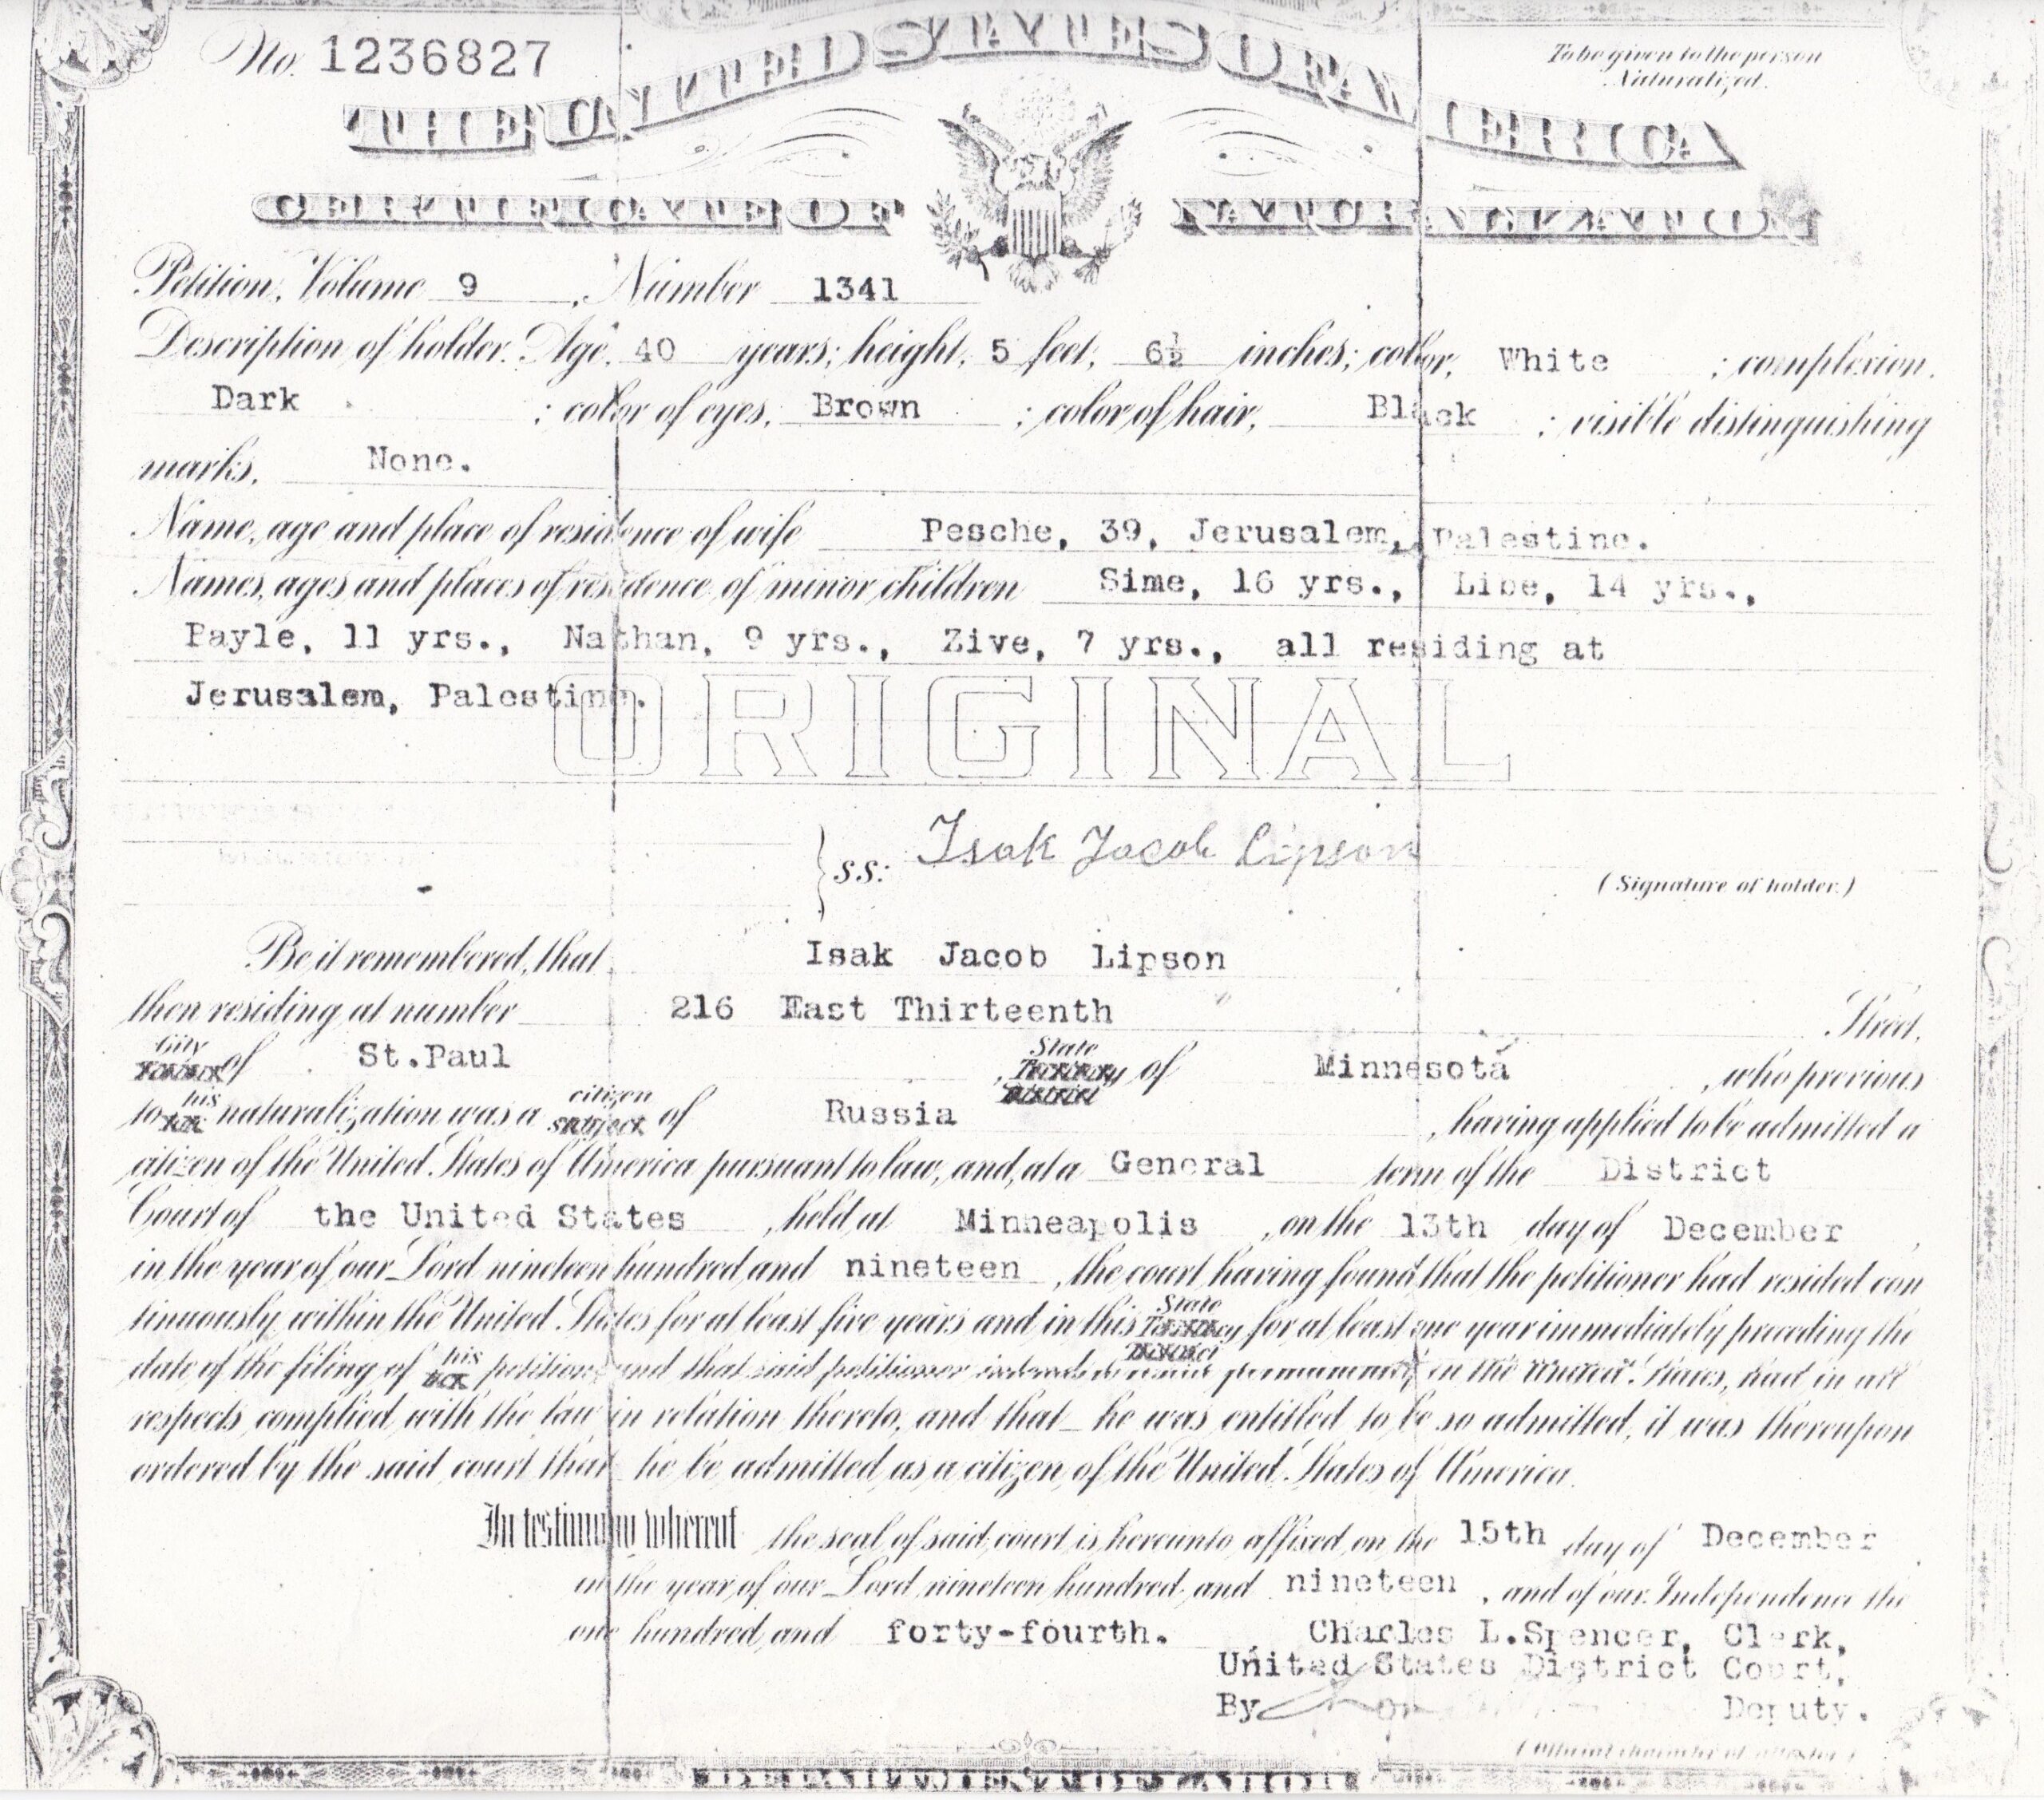 No. 1236827
To be given to the person
Naturalized.
THE UNITED STATES OF AMERICA
CERTIFICATE OF NATURALIZATION
Petition, Volume 9, Number 1341
Description of holder. Age, 40 years; height, 5 feet, 6½ inches; color, White ; complexion,
Dark ; color of eyes, Brown ; color of hair, Black ; visible distinguishing
marks, None.
Name, age and place of residence of wife Pesche, 39, Jerusalem, Palestine.
Names, ages and places of residence of minor children Sime, 16 yrs., Libe, 14 yrs.,
Payle, 11 yrs., Nathan, 9 yrs., Zive, 7 yrs., all residing at
Jerusalem, Palestine.
ORIGINAL
ss: Isak Jacob Lipson
(Signature of holder.)
Be it remembered, that Isak Jacob Lipson
then residing at number 216 East Thirteenth Street,
City of St.Paul , State of Minnesota , who previous
to his naturalization was a citizen subject of Russia , having applied to be admitted a
citizen of the United States of America pursuant to law, and, at a General term of the District
Court of the United States , held at Minneapolis , on the 13th day of December ,
in the year of our Lord nineteen hundred and nineteen , the court having found that the petitioner had resided con
tinuously within the United States for at least five years and in this State Territory for at least one year immediately preceding the
date of the filing of his petition, and that said petitioner intends to reside permanently in the United States, had in all
respects complied with the law in relation thereto, and that he was entitled to be so admitted, it was thereupon
ordered by the said court that he be admitted as a citizen of the United States of America.
In testimony whereof the seal of said court is hereunto affixed on the 15th day of December
in the year of our Lord nineteen hundred and nineteen , and of our Independence the
one hundred and forty-fourth.
Charles L.Spencer, Clerk,
United States District Court,
By Deputy.
(Official character of attestor.)